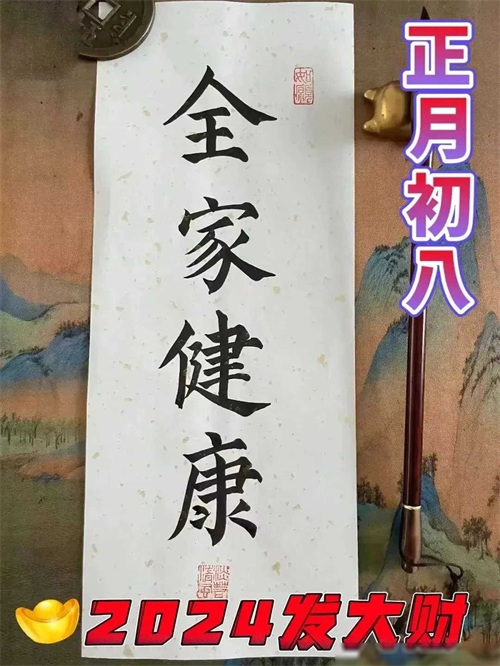 全家健康
正月初八
2024发大财